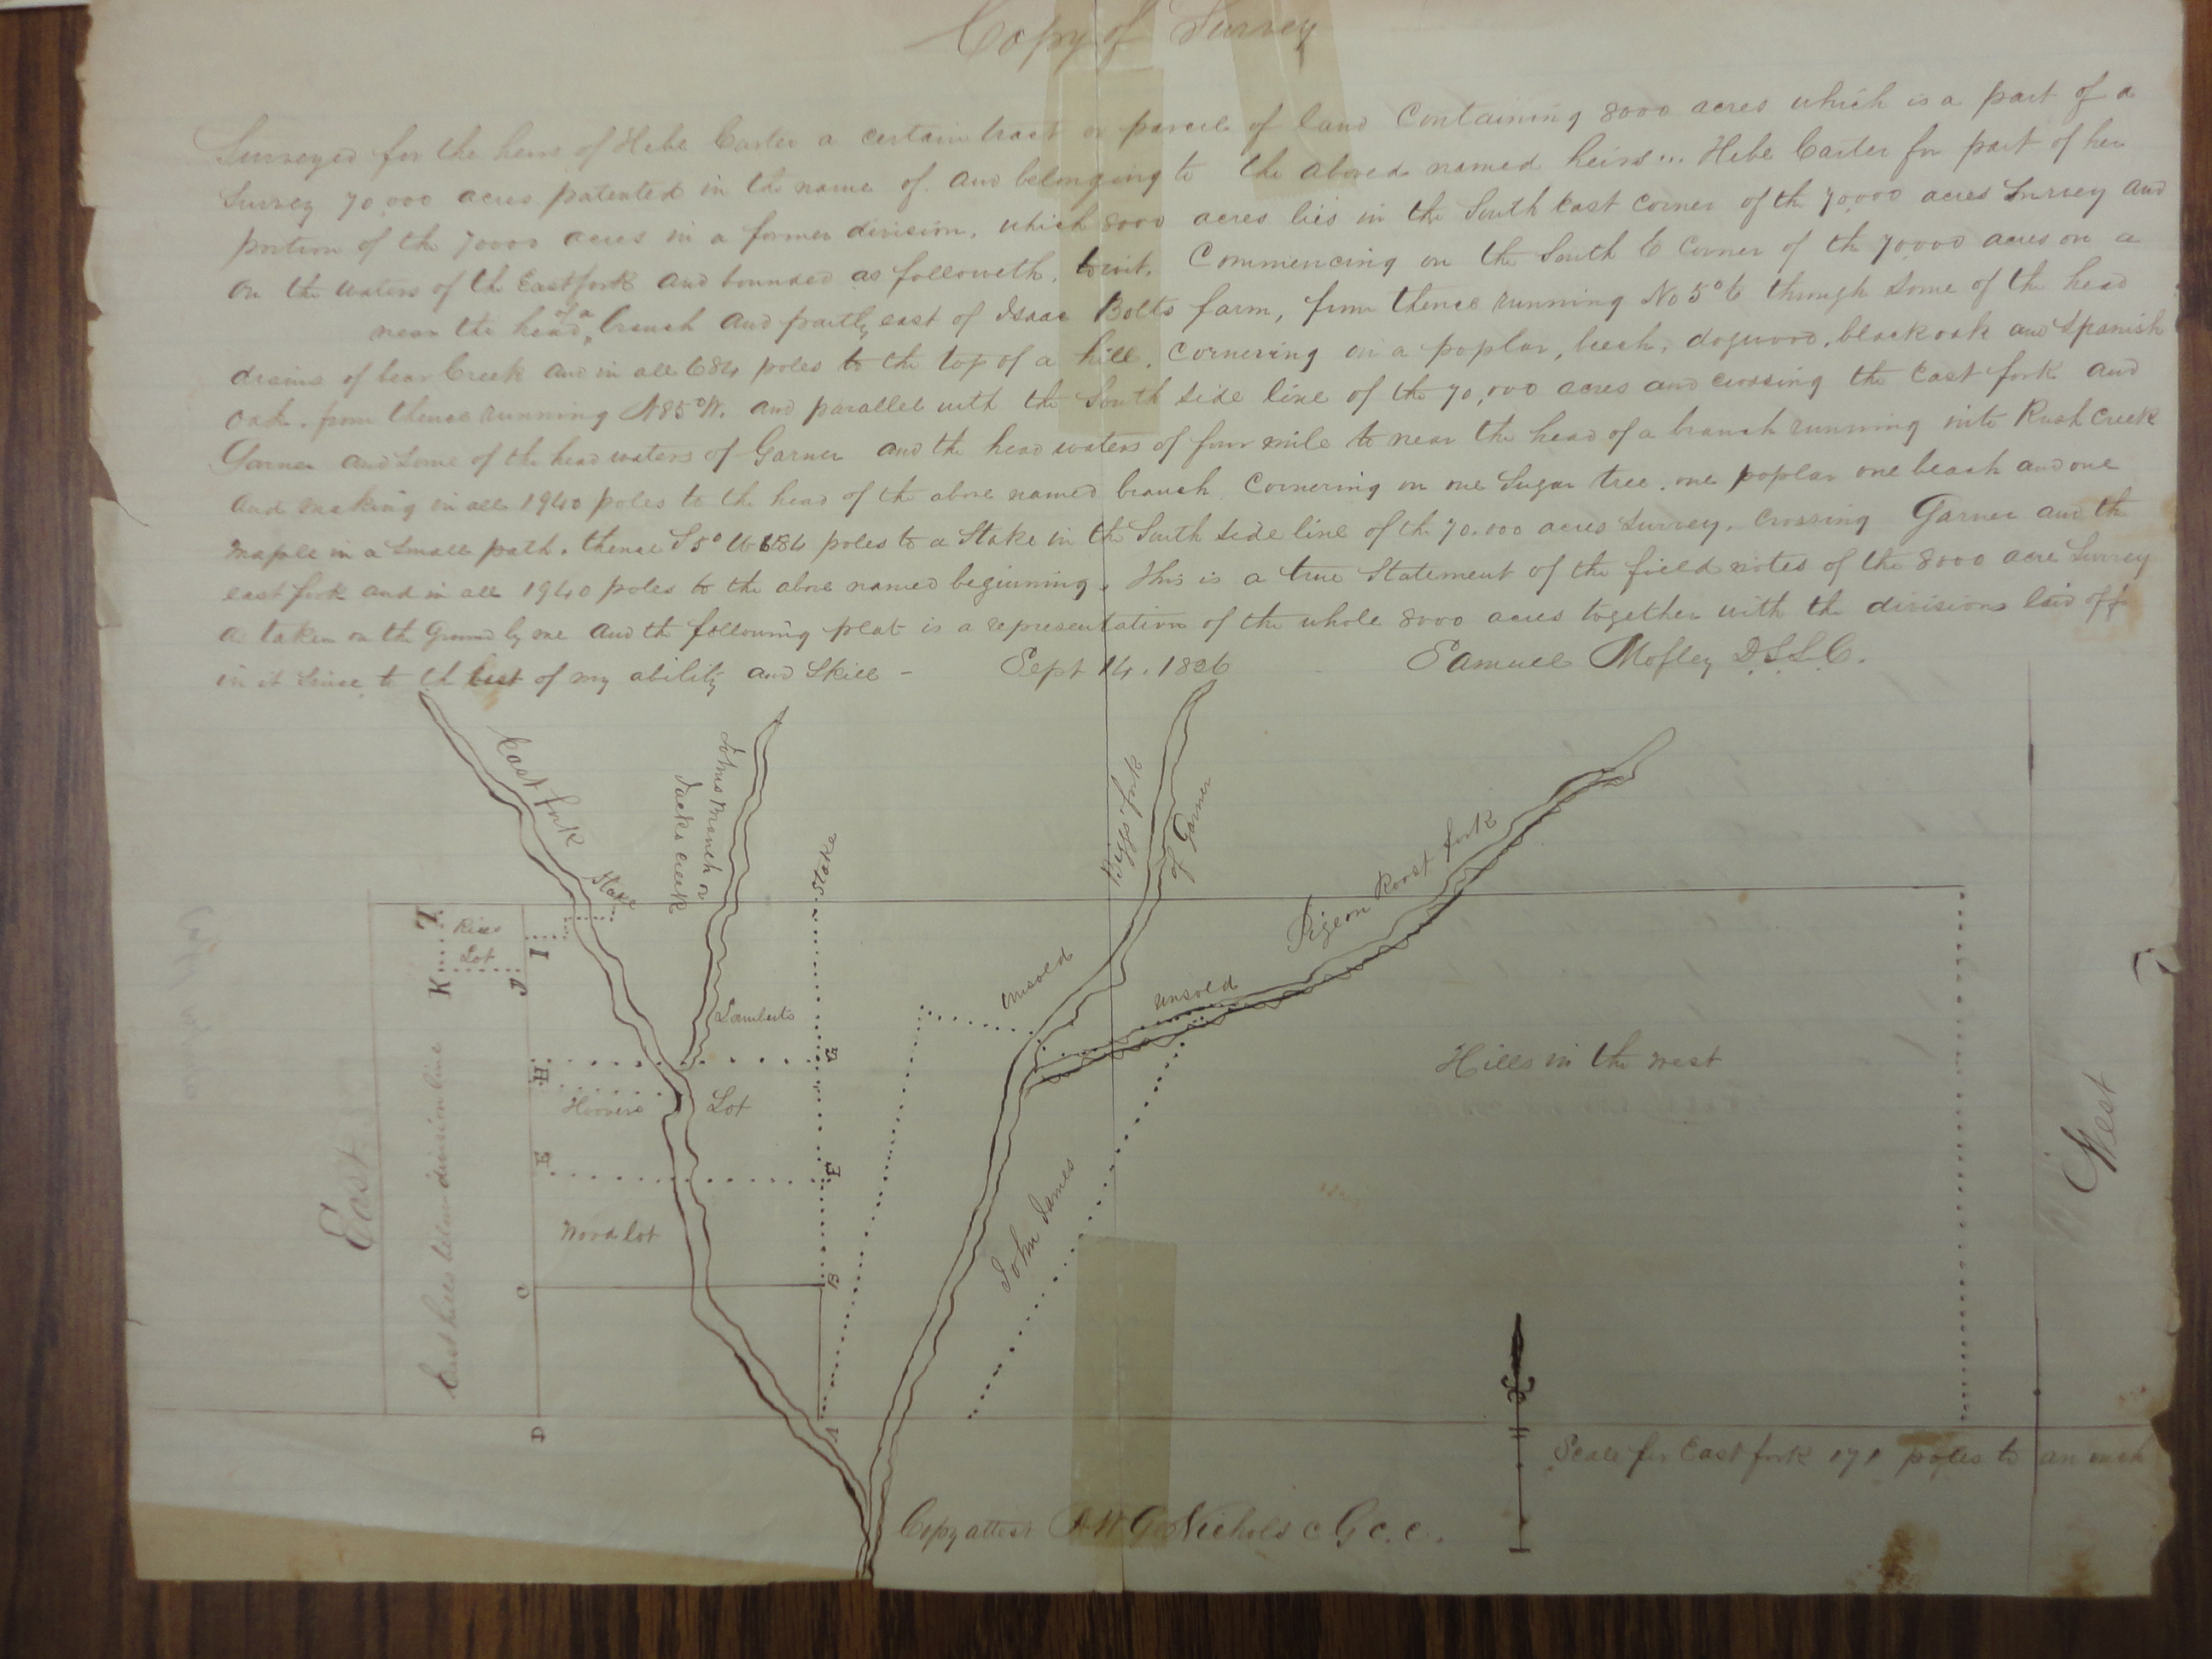 Copy of Survey
Surveyed for the heirs of Hebe Carter a certain tract or parcele of land Containing 8000 acres which is a part of a
Survey 70,000 acres patented in the name of. and belonging to the above named heirs... Hebe Carter for part of her
portion of the 70000 acres in a former division, which 8000 acres lies in the South East Corner of the 70,000 acres Survey and
on the waters of the East fork and bounded as followeth, towit. Commencing on the South E Corner of the 70,000 acres on a
near the head of a branch and partly east of Isaac Bolts farm, from thence running No 5° E through some of the head
drains of bear Creek and in all 684 poles to the top of a hill. Cornering on a poplar, beech, dogwood, black oak and Spanish
oak. from thence running N85°W. and parallel with the South side line of the 70,000 acres and crossing the East fork and
Garner and some of the head waters of Garner and the head waters of four mile to near the head of a branch running into Rush Creek
and making in all 1940 poles to the head of the above named branch. Cornering on one Sugar tree, one poplar one beach and one
maple in a small path. thence S 5° W 684 poles to a Stake in the South side line of the 70.000 acres Survey. Crossing Garner and the
east fork and in all 1940 poles to the above named beginning. This is a true Statement of the field notes of the 8000 acre Survey
as taken on the Ground by me and the following plat is a representation of the whole 8000 acres together with the divisions laid off
in it since to the best of my ability and Skill - Sept 14. 1826 Samuel Mosley D.S.L.C.
East fork
Johns branch or
Jacks creek
Stake
Stake
Biggs fork
of Garner
Pigeon Roost fork
K
Rices
Lot
I
J
unsold
unsold
Lamberts
Hills in the west
H
G
Hoovers Lot
E
F
Wood lot
John James
C
B
East
division line
West
D
A
Scale for East fork 171 poles to an inch
Copy attest A W G Nichols c G c. c.